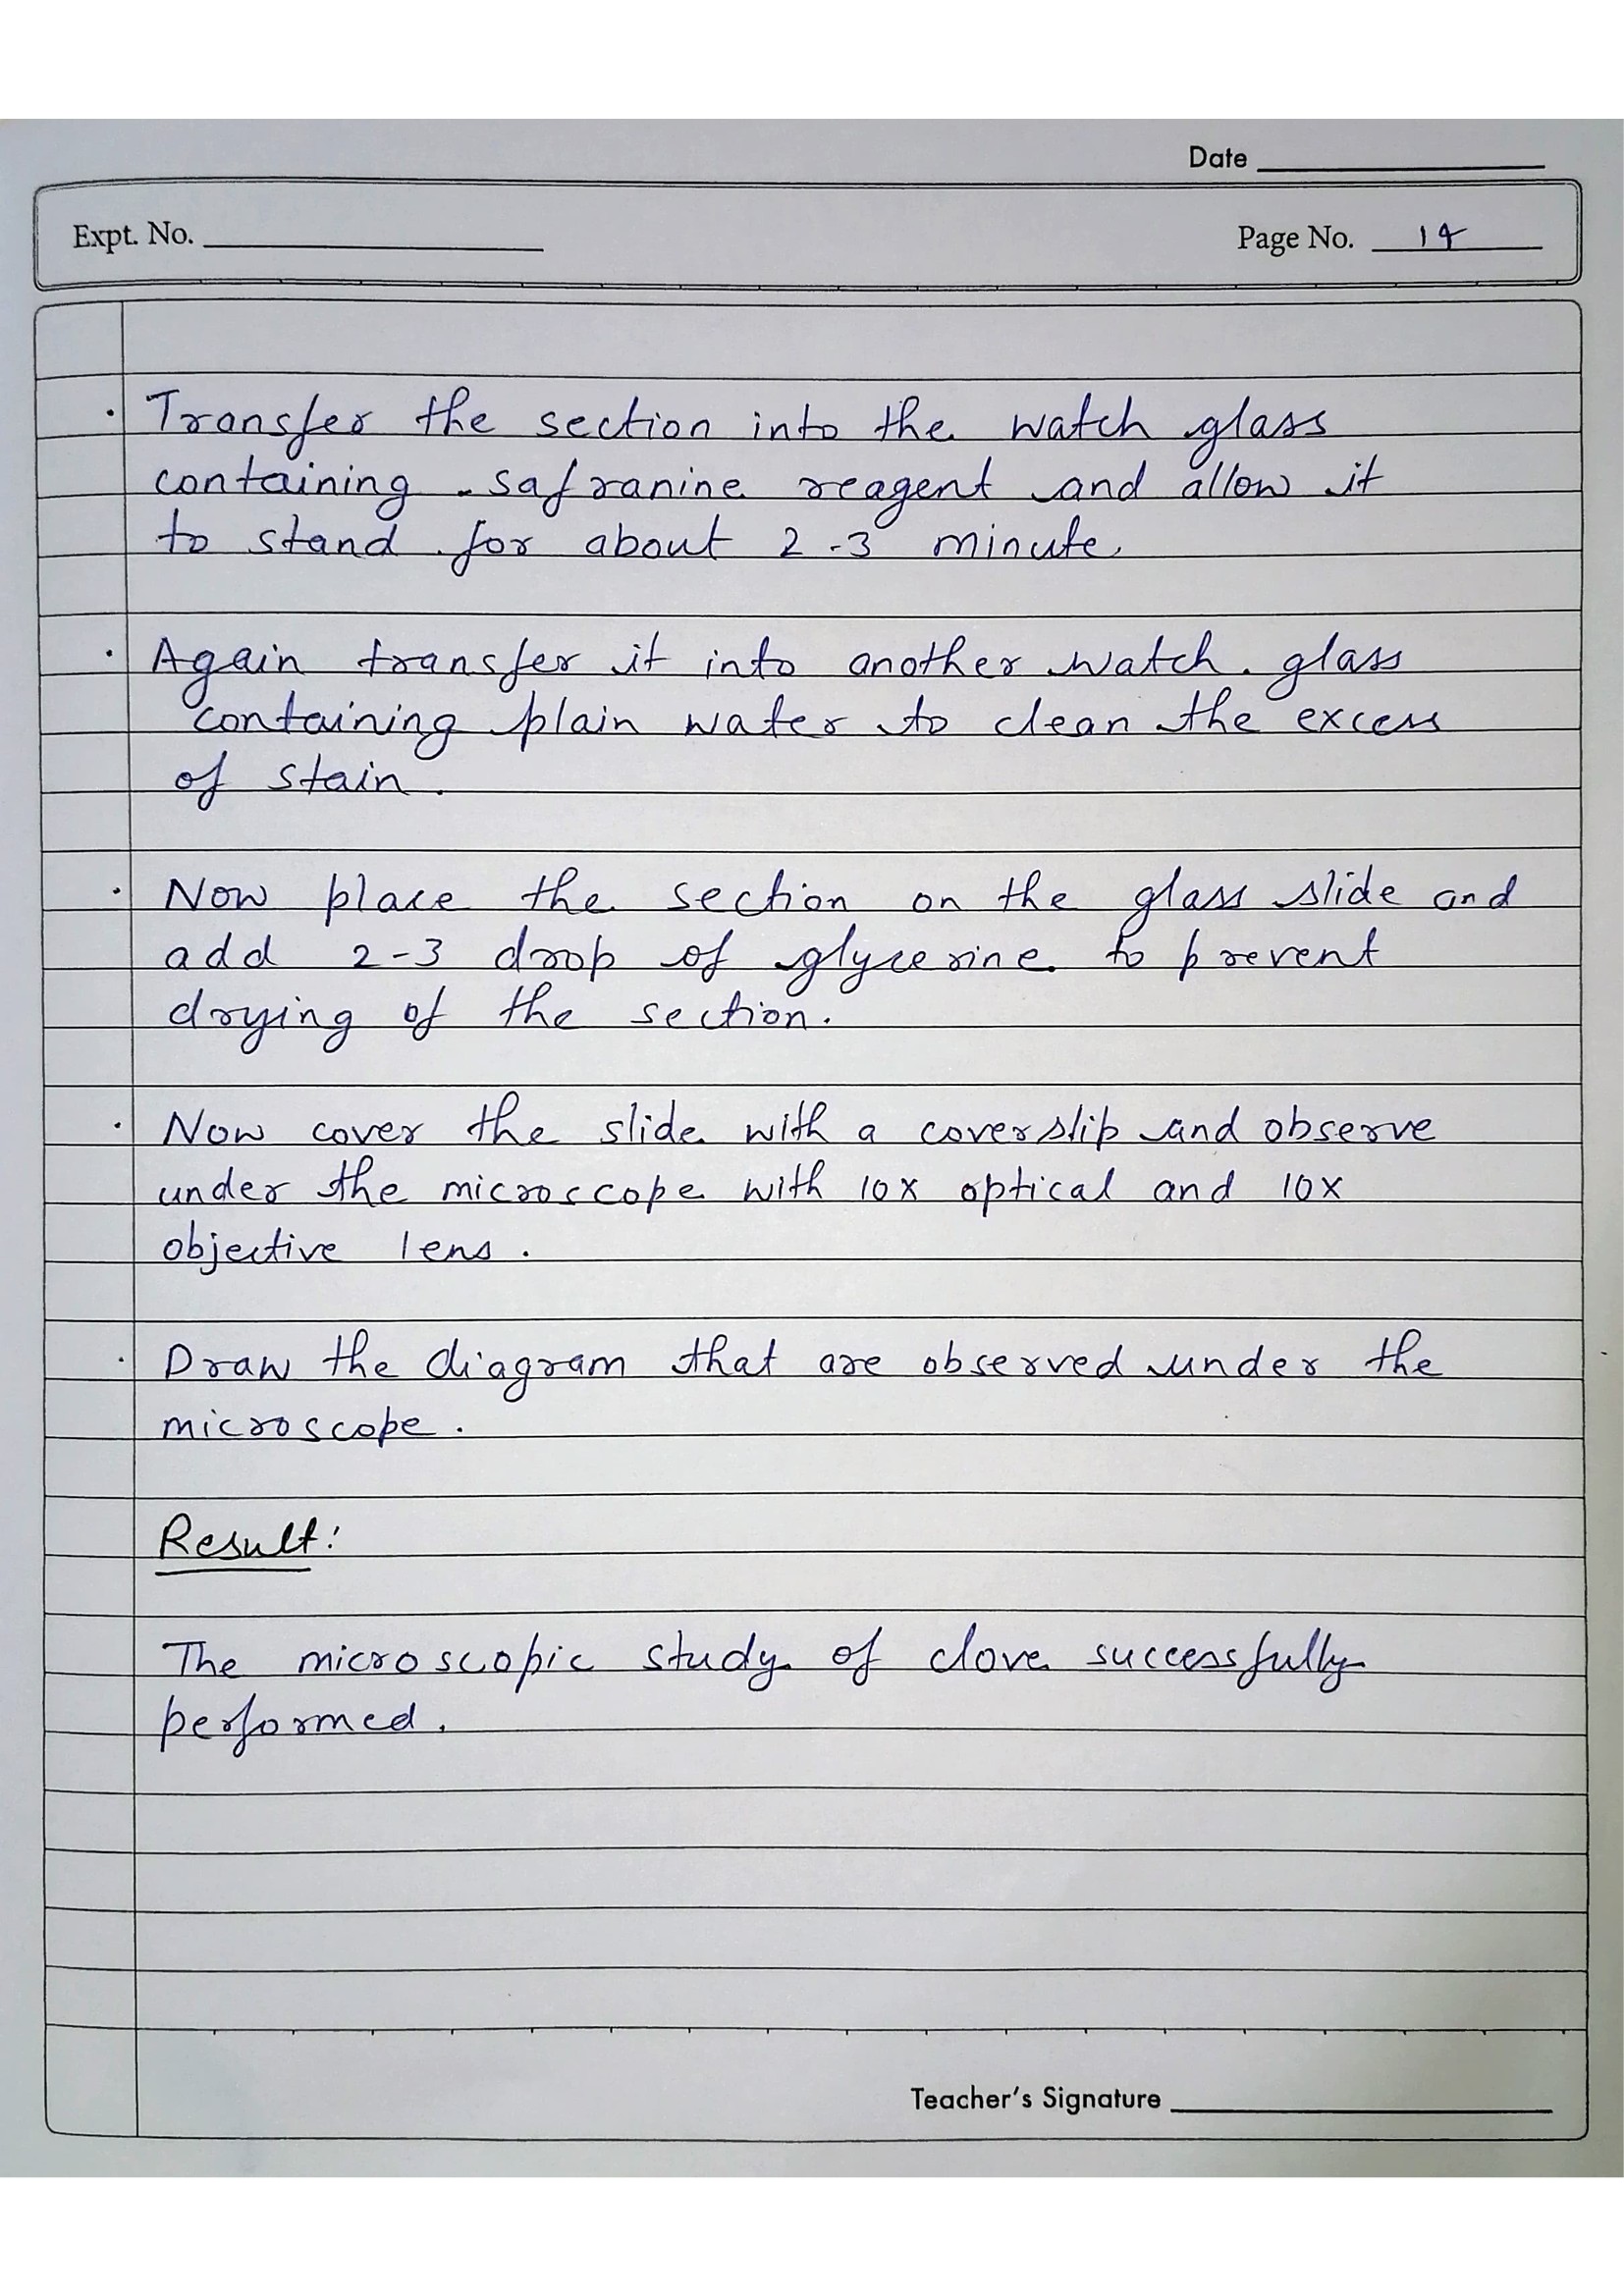 Date
Expt. No.
Page No. 14
· Transfer the section into the watch glass
containing safranine reagent and allow it
to stand for about 2-3 minute.
· Again transfer it into another watch glass
containing plain water to clean the excess
of stain.
· Now place the section on the glass slide and
add 2-3 drop of glycerine to prevent
drying of the section.
· Now cover the slide with a coverslip and observe
under the microscope with 10x optical and 10x
objective lens.
· Draw the diagram that are observed under the
microscope.
Result:
The microscopic study of clove successfully
performed.
Teacher's Signature